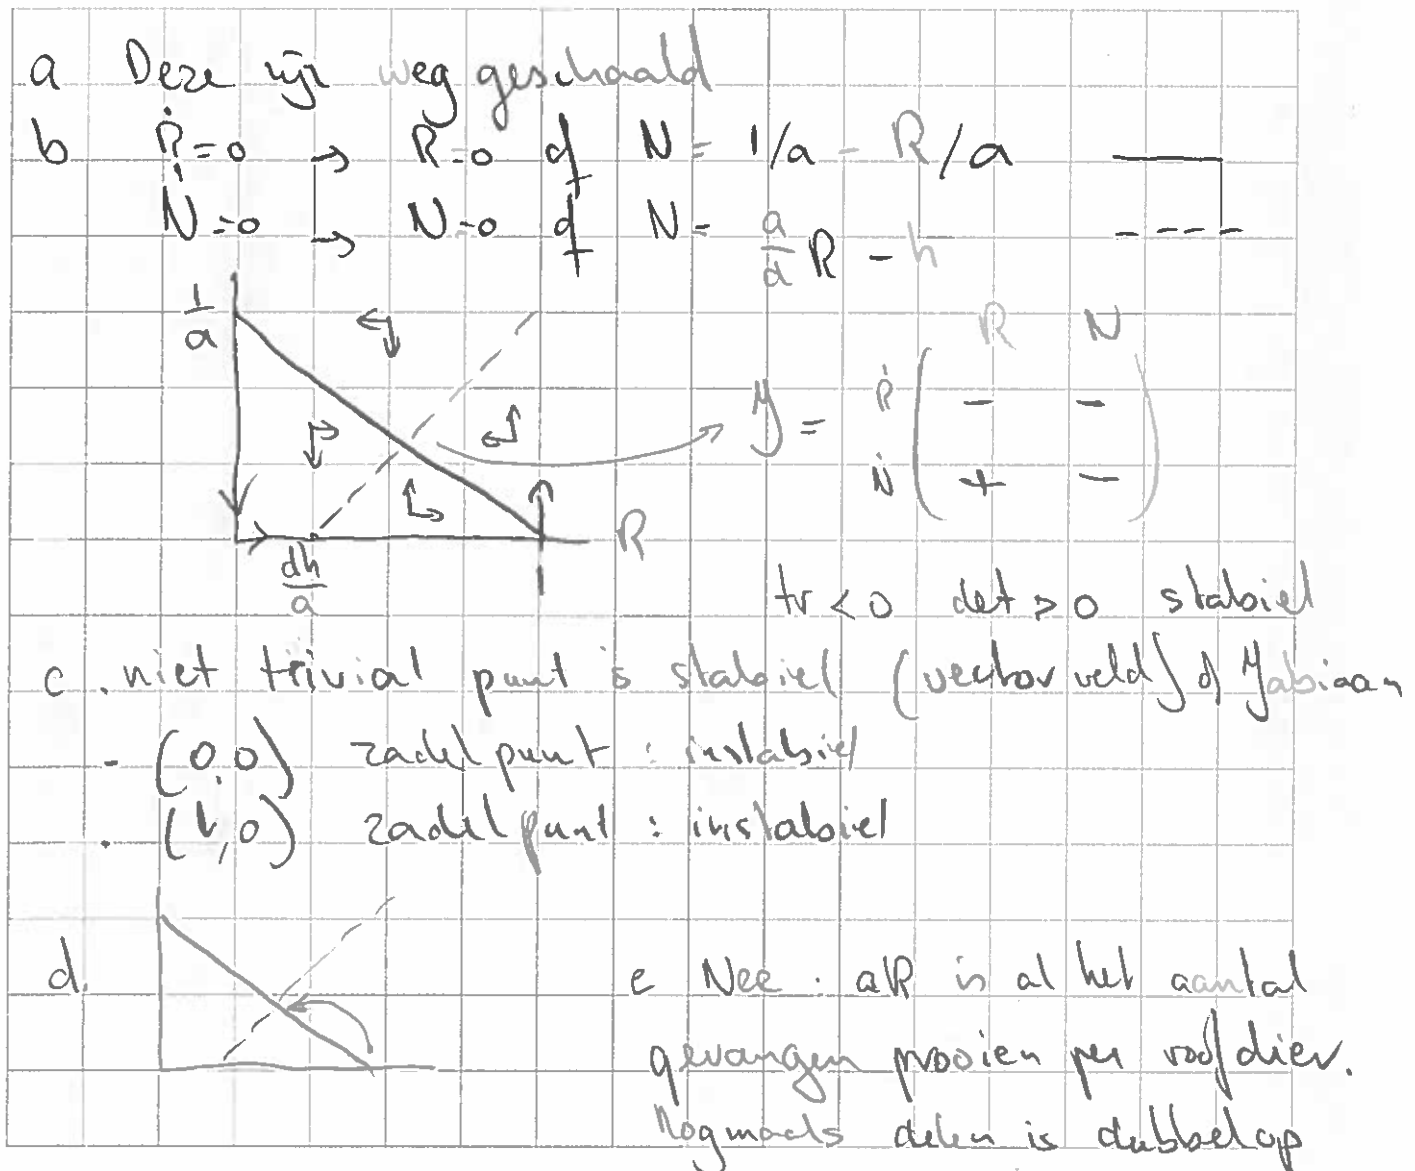 a Deze zijn weg geschaald
b Ṙ=0 → R=0 of N = 1/a - R/a
Ṅ=0 → N=0 of N= a/d R - h
1/a
R N
J = Ṙ ( - - )
Ṅ ( + - )
R
dh/a
tr < 0 det > 0 stabiel
c . niet trivial punt is stabiel (vectorveld) of Jabiaan
- (0,0) zadelpunt : instabiel
. (1,0) zadelpunt : instabiel
d.
e Nee : aR is al het aantal
gevangen prooien per roofdier.
Nogmaals delen is dubbelop